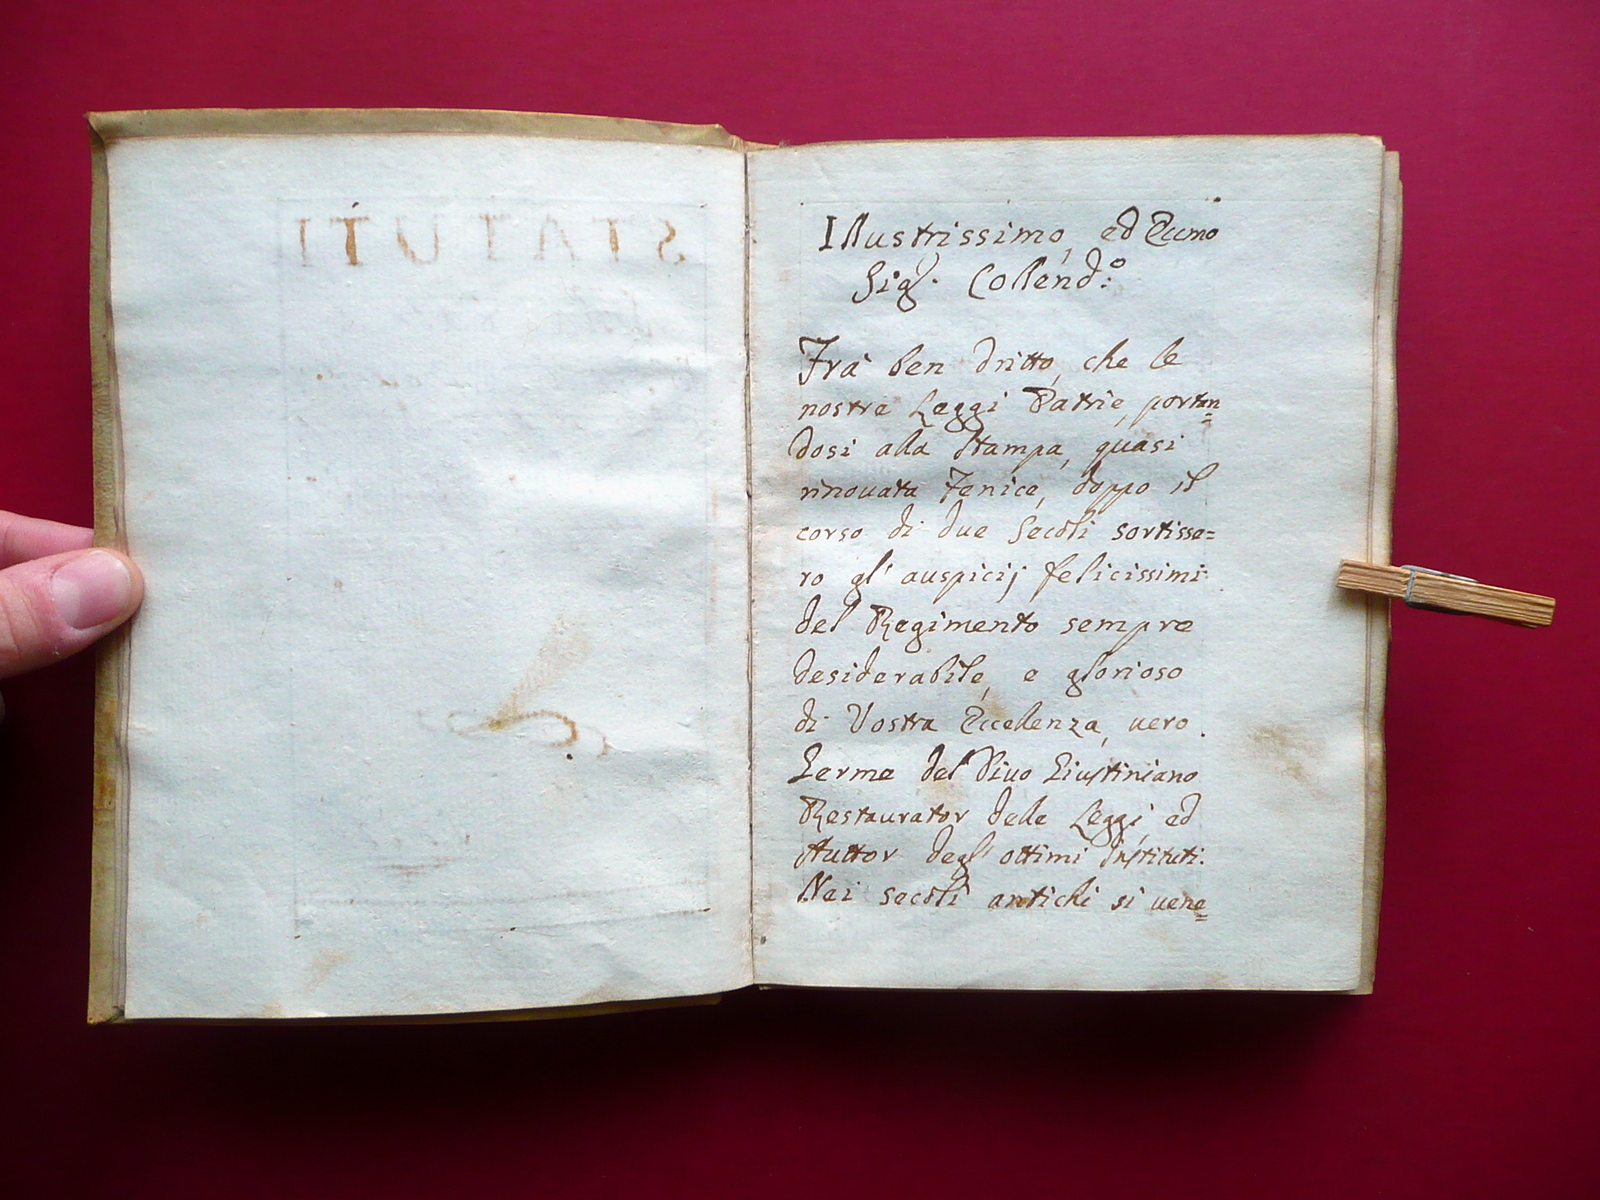 STATUTI
Illustrissimo, ed Eccmo
Sig.r Collend:o
Frà ben dritto, che le
nostre Leggi Patrie, portan=
dosi alla Stampa, quasi
rinouata Fenice, doppo il
corso di due Secoli sortisse=
ro gl' auspicij felicissimi
del Regimento sempre
desiderabile, e glorioso
di Vostra Eccellenza, uero
Germe del Diuo Giustiniano
Restaurator delle Leggi, ed
Auttor degl' ottimi Instituti.
Nei secoli antichi si uene=